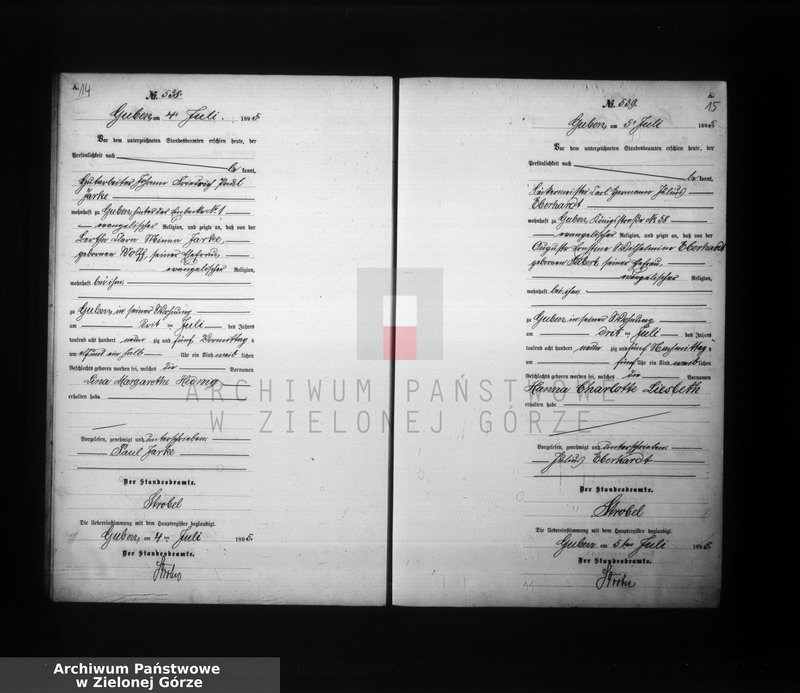 14
№ 538.
Guben, am 4ten Juli 1895.
Vor dem unterzeichneten Standesbeamten erschien heute, der
Persönlichkeit nach
be kannt,
Johann Friedrich Paul
Jarke
wohnhaft zu Guben, hinter der № 1
evangelischer Religion, und zeigte an, daß von der
Bertha Clara Minna Jarke,
gebornen Wolff, seiner Ehefrau,
evangelischer Religion,
wohnhaft bei ihm,
zu Guben in seiner Wohnung
am drit ten Juli des Jahres
tausend acht hundert neun zig und fünf Vormittag s
um elf und ein halb Uhr ein Kind weib lichen
Geschlechts geboren worden sei, welches die Vornamen
Lina Margarethe Hedwig
erhalten habe
Vorgelesen, genehmigt und unterschrieben
Paul Jarke
Der Standesbeamte.
Strobel
Die Uebereinstimmung mit dem Hauptregister beglaubigt.
Guben, am 4ten Juli 1895.
Der Standesbeamte.
15
№ 539.
Guben, am 5ten Juli 1895.
Vor dem unterzeichneten Standesbeamten erschien heute, der
Persönlichkeit nach
be kannt,
Carl Hermann Julius
Eberhardt
wohnhaft zu Guben, Königstraße № 58
evangelischer Religion, und zeigte an, daß von der
Auguste Ernstine Wilhelmine Eberhardt
gebornen seiner Ehefrau,
evangelischer Religion,
wohnhaft bei ihm
zu Guben in seiner Wohnung
am drit ten Juli des Jahres
tausend acht hundert neun zig und fünf Nachmittag s
um fünf Uhr ein Kind weib lichen
Geschlechts geboren worden sei, welches die Vornamen
Hanna Charlotte Liesbeth
erhalten habe
Vorgelesen, genehmigt und unterschrieben
Julius Eberhardt
Der Standesbeamte.
Strobel
Die Uebereinstimmung mit dem Hauptregister beglaubigt.
Guben am 5ten Juli 1895.
Der Standesbeamte.
ARCHIWUM PAŃSTWOWE
W ZIELONEJ GÓRZE
Archiwum Państwowe
w Zielonej Górze